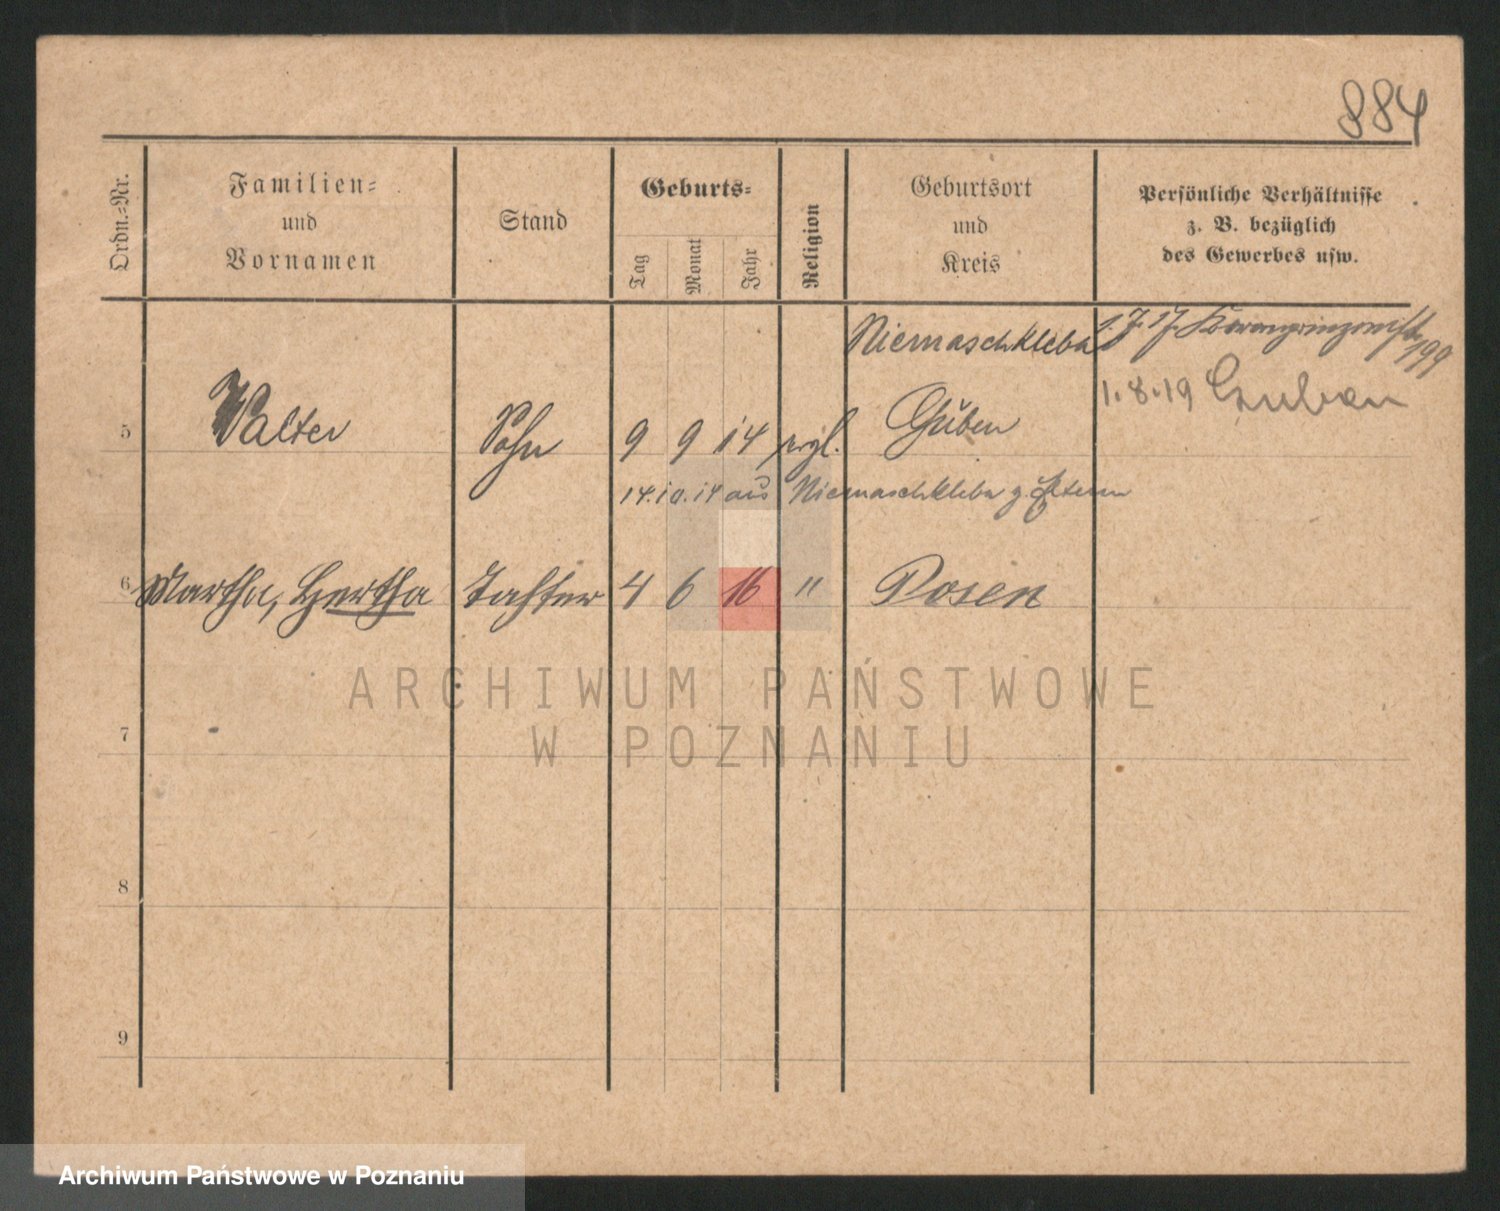 884
Ordn.-Nr.
Familien-
und
Vornamen
Stand
Geburts-
Tag
Monat
Jahr
Religion
Geburtsort
und
Kreis
Persönliche Verhältnisse
z. B. bezüglich
des Gewerbes usw.
Niemaschkleba 1.7.17. Kronprinzenstr. 199
1.8.19 Guben
5 Walter Sohn 9 9 14 evgl. Guben
14.10.14 aus Niemaschkleba z. Eltern
6 Martha, Hertha Tochter 4 6 16 " Posen
ARCHIWUM PAŃSTWOWE
W POZNANIU
7
8
9
Archiwum Państwowe w Poznaniu